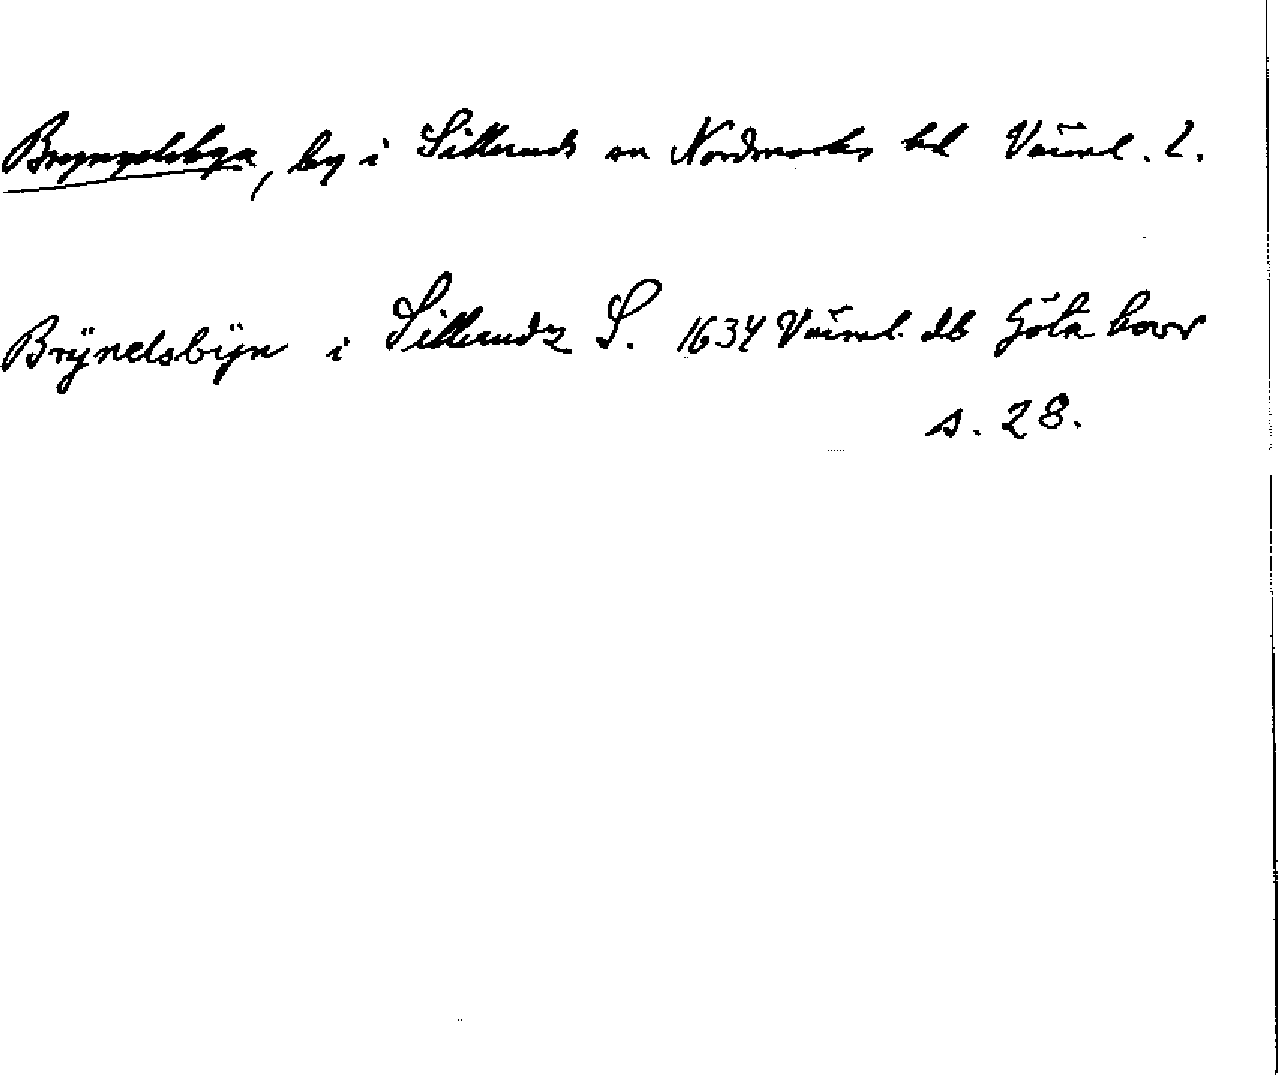 Bryngelsbyn, by i Silleruds sn Nordmarks hd Värml. l.
Brÿnelsbÿn i Sillerudz S. 1634 Värml. db Göta hovr
s. 28.